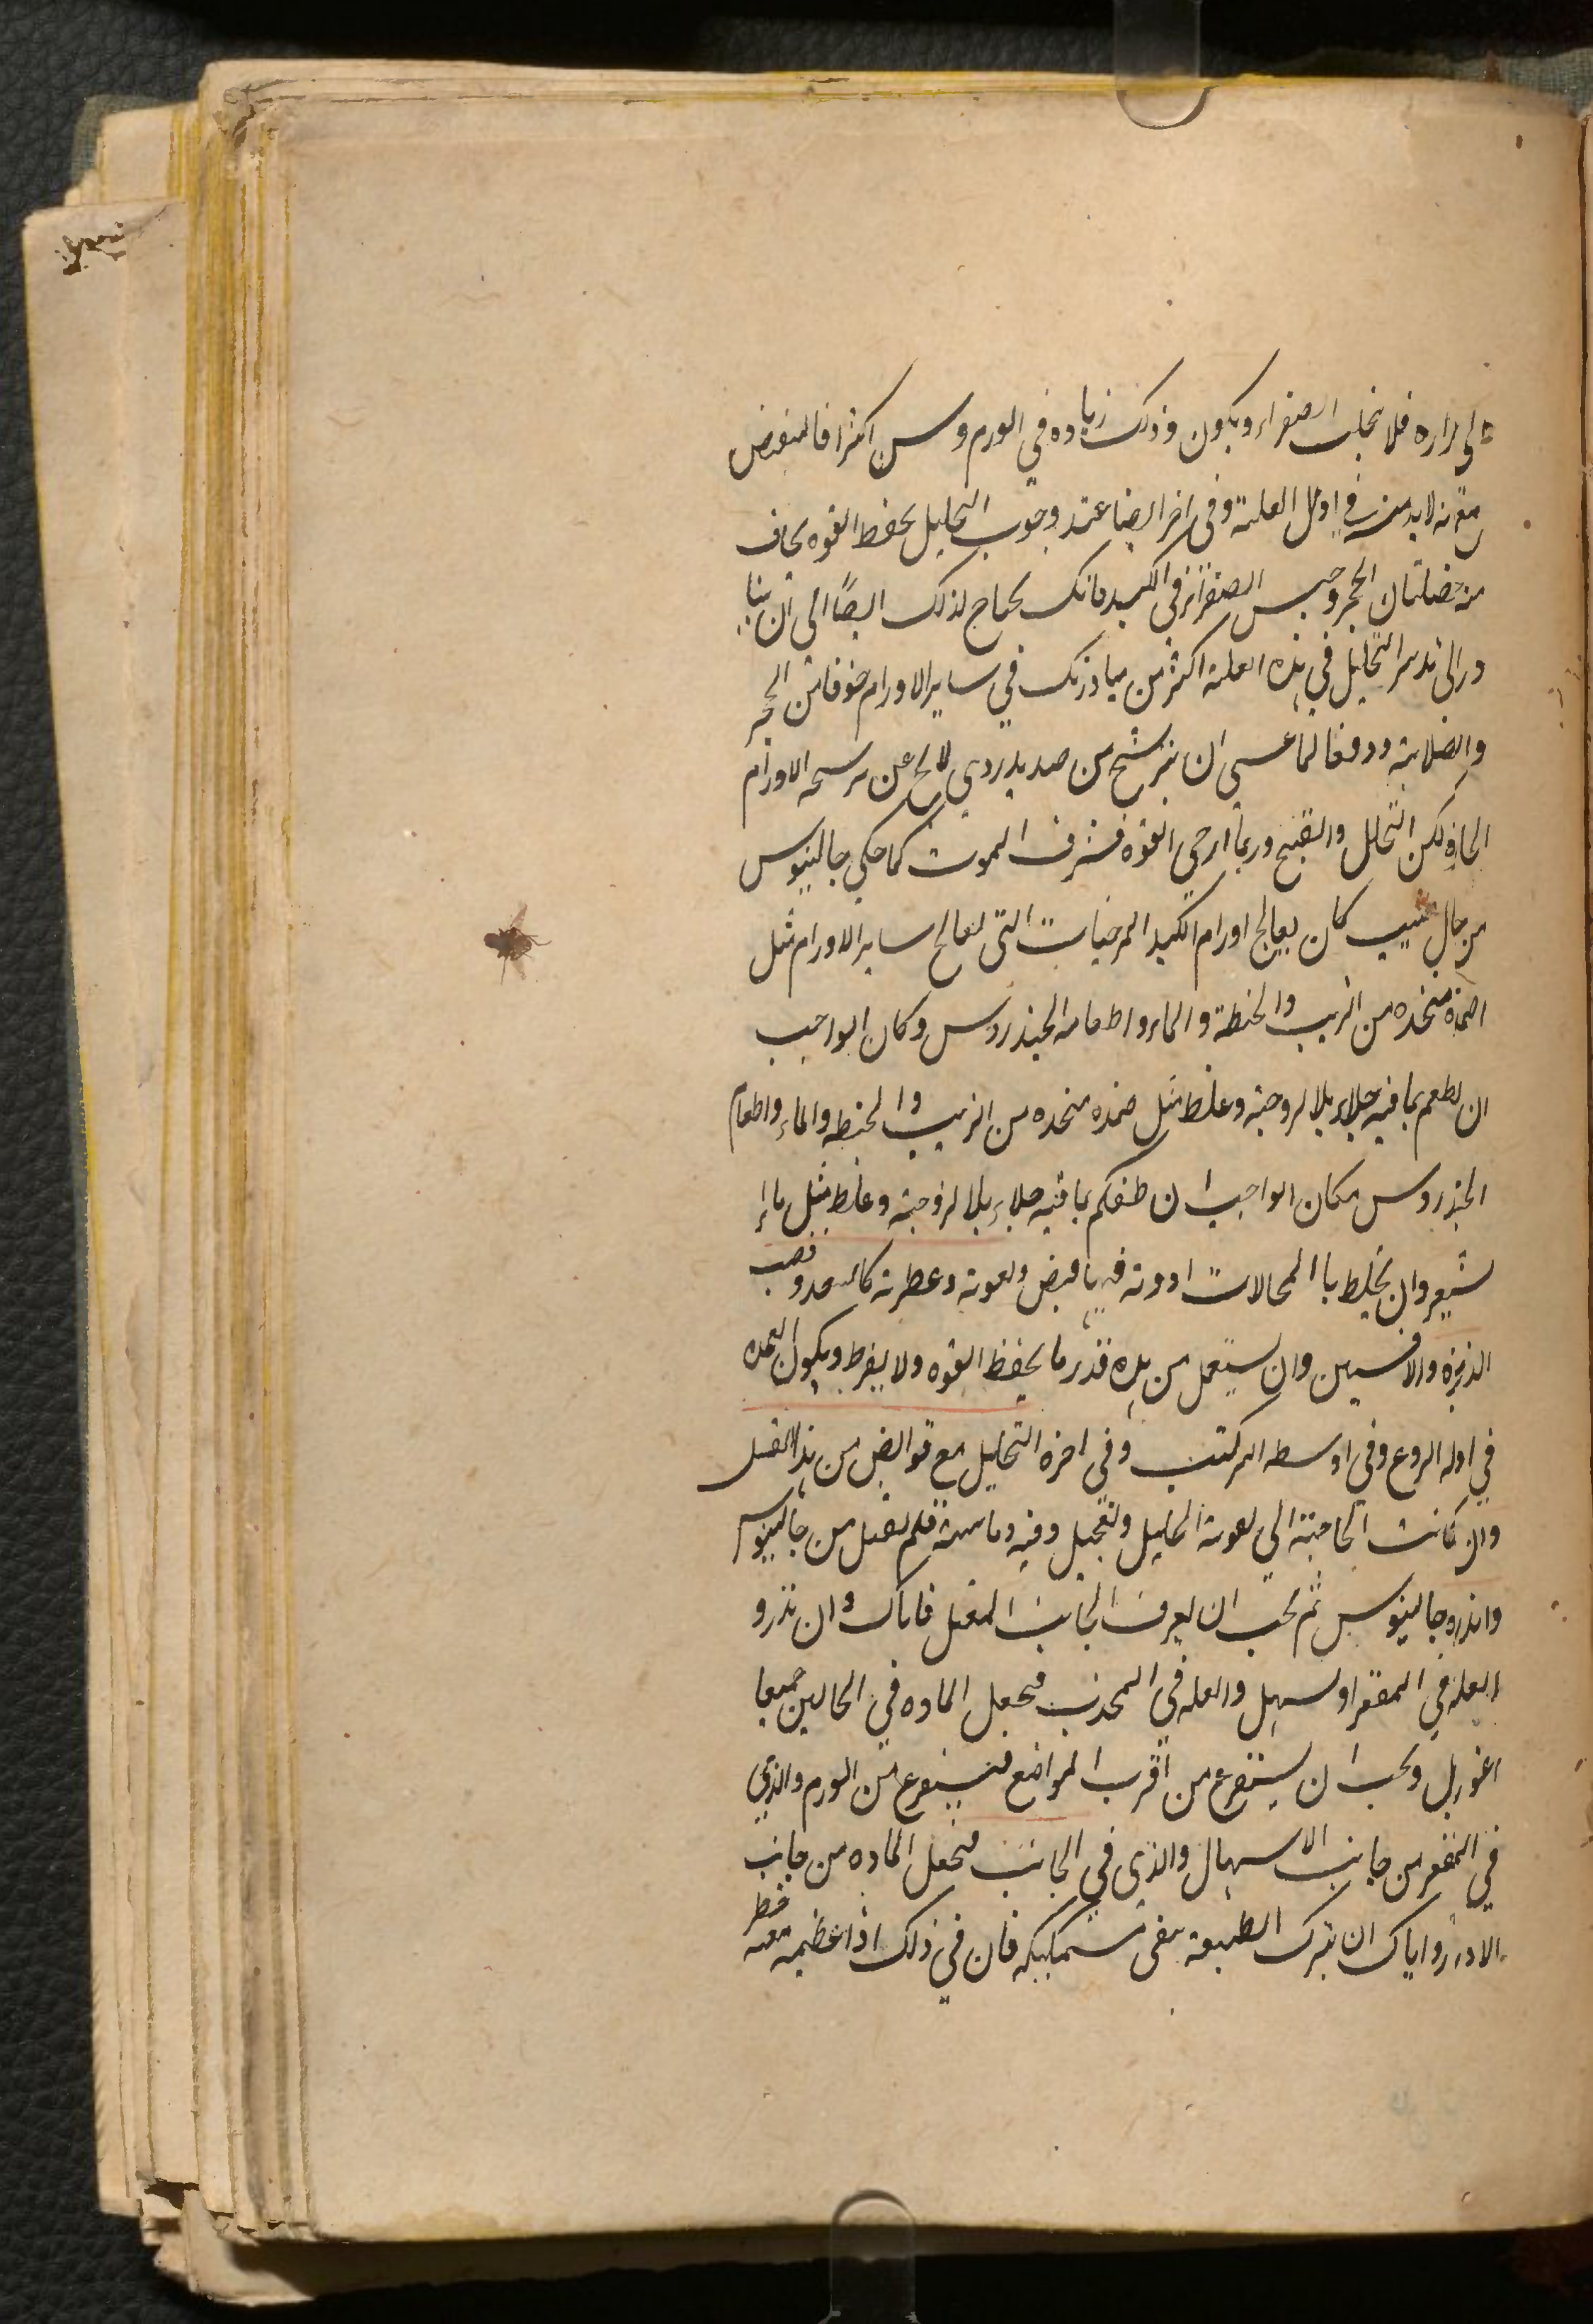 الى المراره فلا تجلب الصفراء ويكون وذلك زياده في الورم وسن اكثرا فالمنقبض
مع انه لا بد منه في اول العلة وفي اخر ايضا عند وجوب التحليل بحفظ القوه يخاف
منه خصلتان الحجر وحبس الصفراء في الكبد فانك تحتاج لذلك ايضًا الى ان تبا
در الى تدبير التحليل في هذه العلة اكثر من مبادرتك في ساير الاورام خوفا من الحجر
والصلابة ودفعا لما عسى ان يترشح من صديد ردي لا يخ عن ترشحه الاورام
الحاره لكن التحلل والتقيح وربما ارخى القوة فشرف الموت كما حكى جالينوس
من حال طبيب كان يعالج اورام الكبد المرخيات التي تعالج ساير الاورام مثل
اضمدة متخذه من الزيت والحنطة والماء واطعامه الخندروس وكان الواجب
ان يطعم بما فيه جلاء بلا لزوجة وغلظ مثل ضمده متخذه من الزيت والحنطه والماء واطعام
الخندروس مكان الواجب ان يطعمكم بما فيه جلاء بلا لزوجة وغلظ مثل ماء
شعير وان يخلط با المحالات ادوية فيها قبض وتقوية وعطرية كالسعد وقصب
الذريرة والافسنتين وان يستعمل من هذه قدر ما يحفظ القوه ولا يفرط ويكون العمده
في اوله الردع وفي اوسطه المركب وفي اخره التحليل مع قوابض من هذا القبيل
وان كانت الحاجة الى تقوية التحليل وتعجيل وفيه وما سية فلم يقبل من جالينوس
وانذره جالينوس ثم يجب ان يعرف الجانب المعتل فاياك وان تدرو
العله في المقعر او تسهل والعله في المحدب فتجعل الماده في الحالين جميعا
اغور بل ويجب ان يستفرغ من اقرب المواضع فيستفرغ من الورم والذي
في المقعر من جانب الاسهال والذي في الجانب فتجعل الماده من جانب
الادرار واياك ان تترك الطبيعة تبقى مستمسكة فان في ذلك اذا عظيمة معه خطر